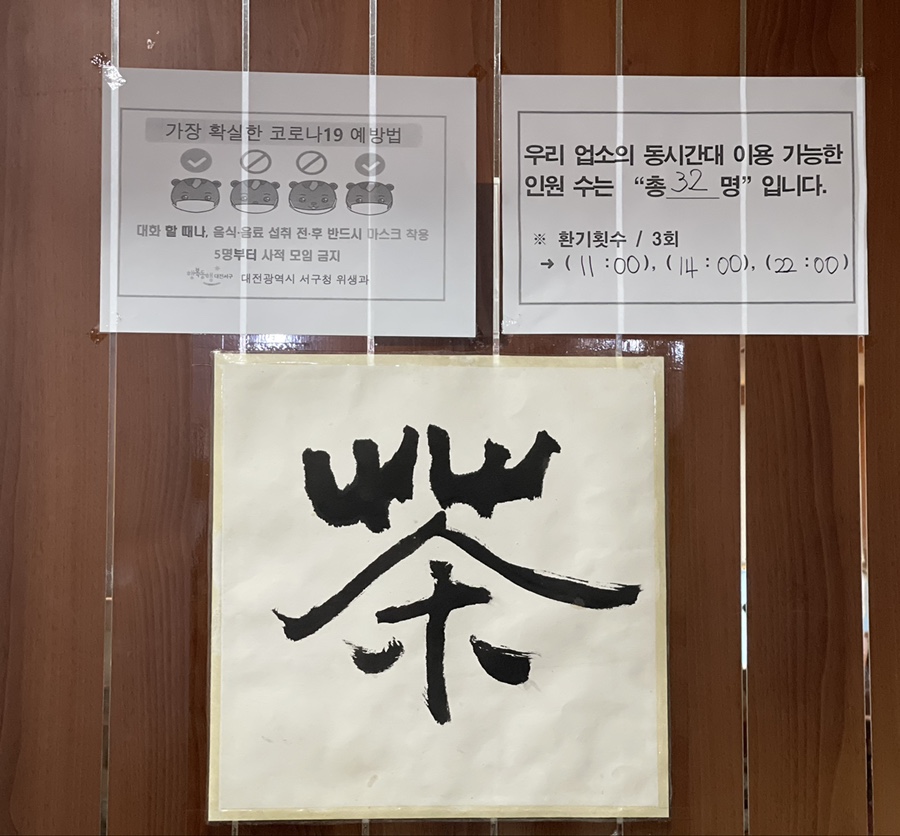 가장 확실한 코로나19 예방법
대화 할 때나, 음식·음료 섭취 전·후 반드시 마스크 착용
5명부터 사적 모임 금지
대전서구 대전광역시 서구청 위생과
우리 업소의 동시간대 이용 가능한
인원 수는 “총 32 명” 입니다.
※ 환기횟수 / 3회
➔ (11:00), (14:00), (22:00)
茶